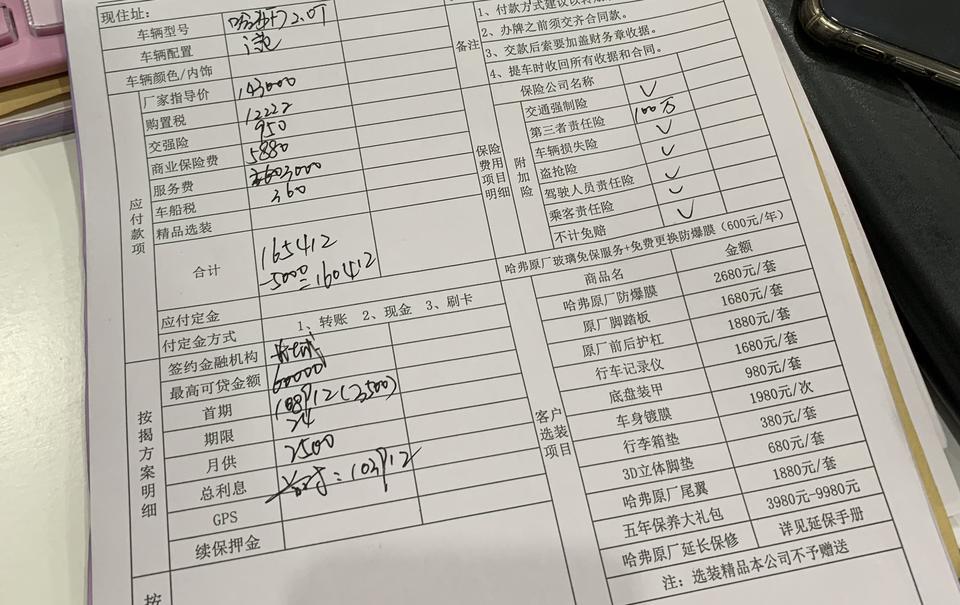 现住址：
车辆型号 哈弗H7 2.0T
车辆配置
车辆颜色/内饰
应付款项
厂家指导价 143000
购置税 12222
交强险 950
商业保险费 5880
服务费 3000
车船税 360
精品选装
合计 165412
-5000=160412
应付定金
付定金方式 1、转账 2、现金 3、刷卡
按揭方案明细
签约金融机构
最高可贷金额 60000
首期 108912(3500)
期限 24
月供 2500
总利息 =103912
GPS
续保押金
按
备注
1、付款方式建议以转
2、办牌之前须交齐合同款。
3、交款后索要加盖财务章收据。
4、提车时收回所有收据和合同。
保险费用项目明细
保险公司名称
附加险
交通强制险 ✓
第三者责任险 100万
车辆损失险 ✓
盗抢险 ✓
驾驶人员责任险 ✓
乘客责任险 ✓
不计免赔 ✓
哈弗原厂玻璃免保服务+免费更换防爆膜（600元/年）
客户选装项目
商品名 金额
哈弗原厂防爆膜 2680元/套
原厂脚踏板 1680元/套
原厂前后护杠 1880元/套
行车记录仪 1680元/套
底盘装甲 980元/套
车身镀膜 1980元/次
行李箱垫 380元/套
3D立体脚垫 680元/套
哈弗原厂尾翼 1880元/套
五年保养大礼包 3980元-9980元
哈弗原厂延长保修 详见延保手册
注：选装精品本公司不予赠送